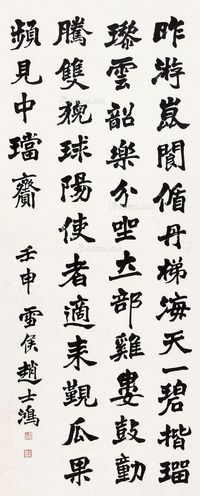 昨游崑閬偱丹梯海天一碧揩瑠
璨雲韶樂分坐立部雞婁鼓動
騰雙猊球陽使者適來觀瓜果
頻見中璫齎
壬申 雪侯趙士鴻